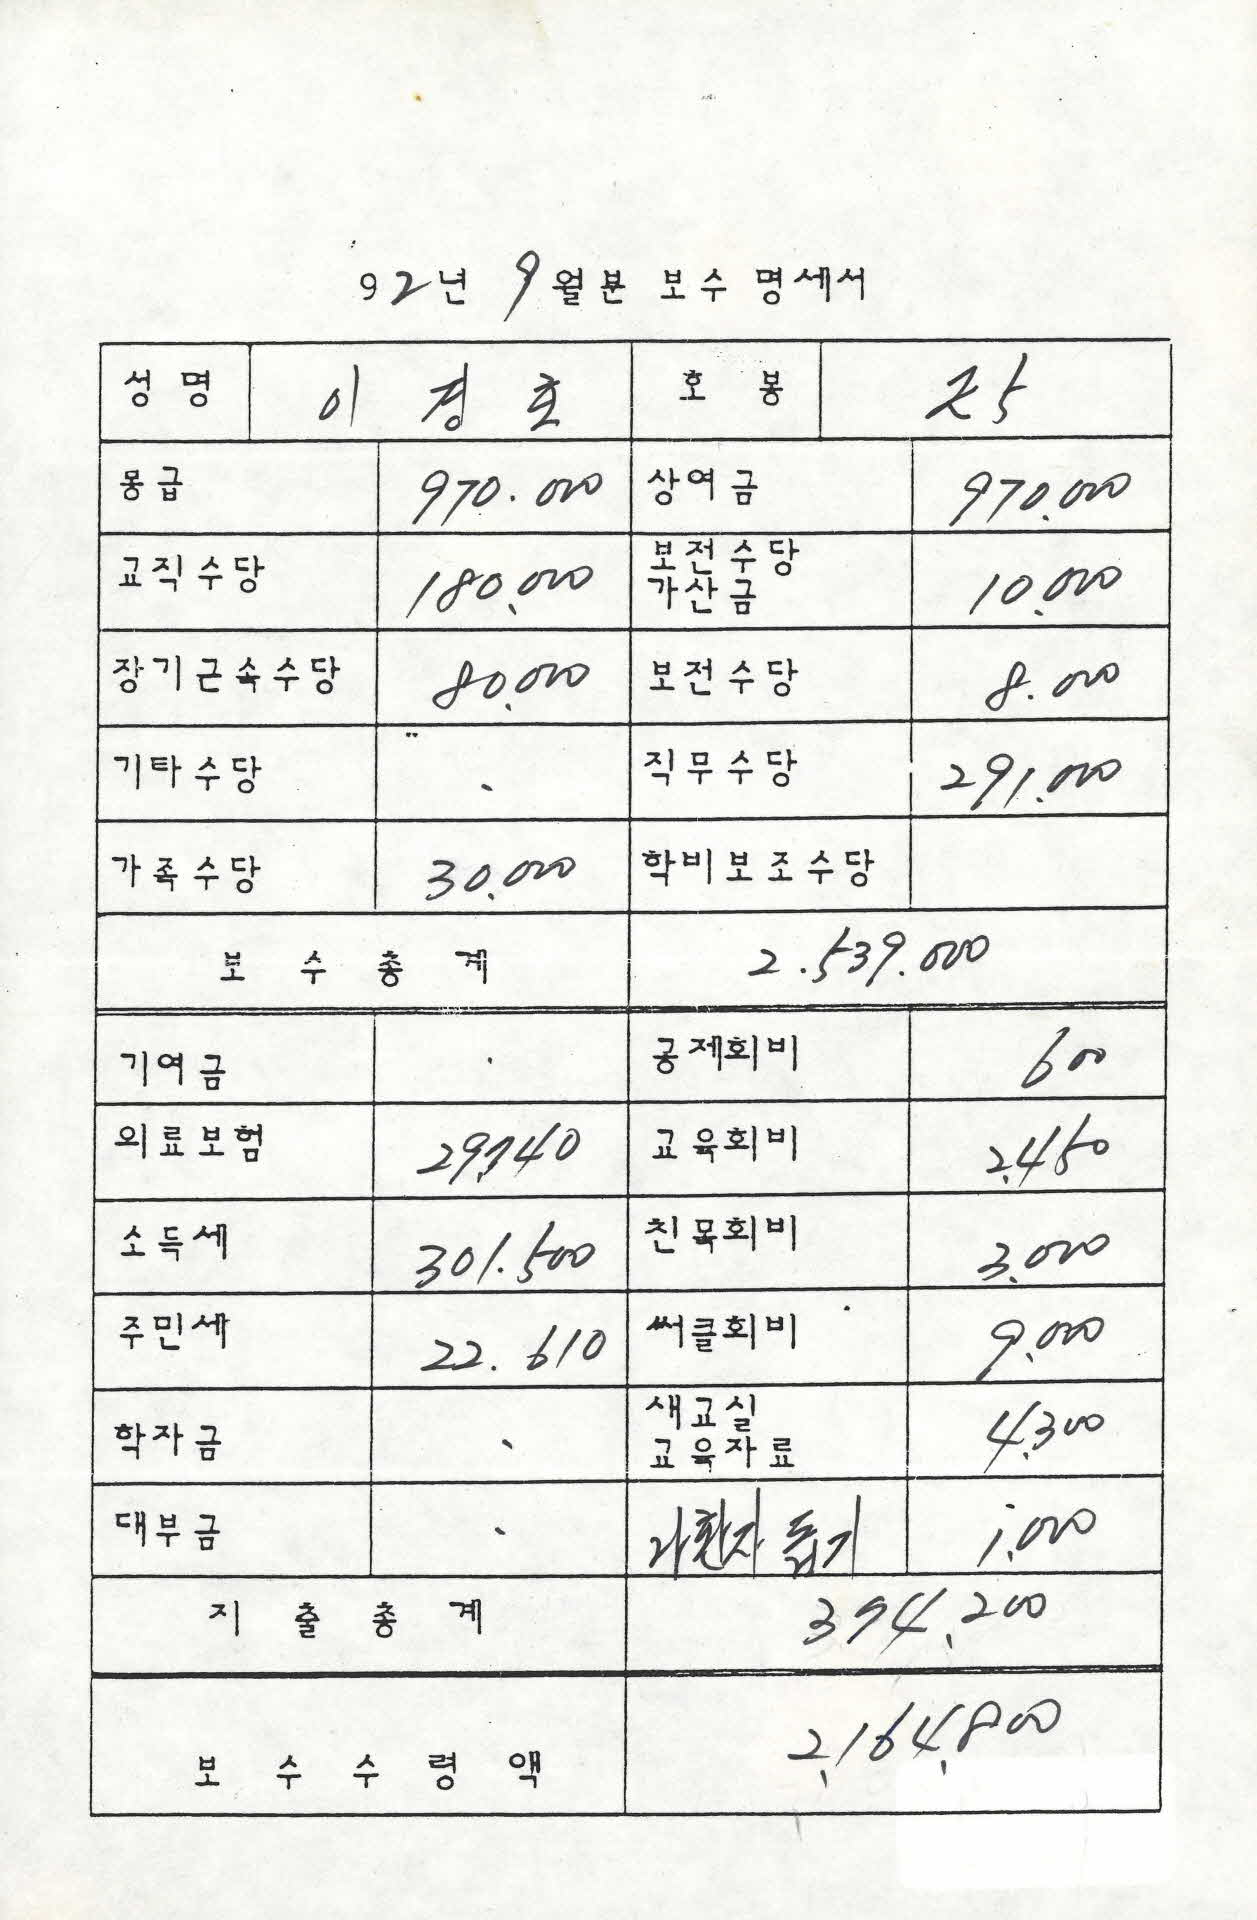 92년 9월분 보수 명세서
성명 이 경 호 호 봉
봉급 970.000 상여금 970.000
교직수당 180,000 보전수당 가산금 10,000
장기근속수당 80,000 보전수당 8.000
기타수당 직무수당 291,000
가족수당 30,000 학비보조수당
보 수 총 계 2.539.000
기여금 공제회비 600
의료보험 29,740 교육회비 2,450
소득세 301.500 친목회비 3,000
주민세 22.610 써클회비 9,000
학자금 새교실 교육자료 4,300
대부금 나환자 돕기 1,000
지 출 총 계 394,200
보 수 수 령 액 2,164,800